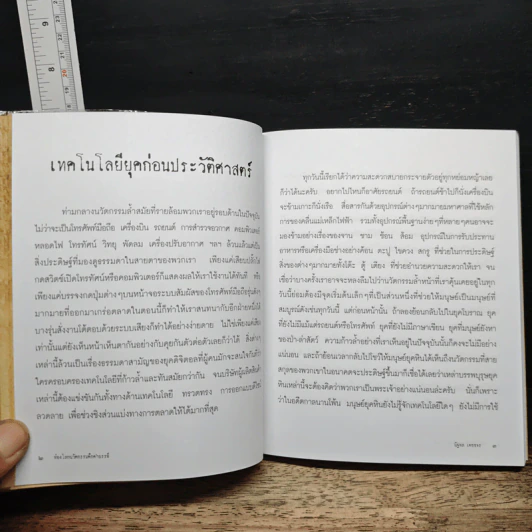 เทคโนโลยียุคก่อนประวัติศาสตร์
ท่ามกลางนวัตกรรมล้ำสมัยที่รายล้อมพวกเราอยู่รอบด้านในปัจจุบัน
ไม่ว่าจะเป็นโทรศัพท์มือถือ เครื่องบิน รถยนต์ การสำรวจอวกาศ คอมพิวเตอร์
หลอดไฟ โทรทัศน์ วิทยุ พัดลม เครื่องปรับอากาศ ฯลฯ ล้วนแล้วแต่เป็น
สิ่งประดิษฐ์ที่มองดูธรรมดาในสายตาของพวกเรา เพียงแค่เสียบปลั๊ก
กดสวิตช์เปิดโทรทัศน์หรือคอมพิวเตอร์ก็แสดงผลให้เราใช้งานได้ทันที หรือ
เพียงแค่บรรจงกดปุ่มต่างๆบนหน้าจอระบบสัมผัสของโทรศัพท์มือถือรุ่น
มากมายที่ออกมาเกร่อตลาดในตอนนี้ก็ทำให้เราสนทนากับอีกฝ่ายหนึ่งได้
บางรุ่นสั่งงานโต้ตอบด้วยระบบเสียงก็ทำได้อย่างง่ายดาย ไม่ใช่เพียงแค่เสียง
เท่านั้นแต่ยังเห็นหน้าเห็นตากันอย่างกับคุยกันตัวต่อตัวเลยก็ว่าได้ สิ่งต่างๆ
เหล่านี้ล้วนเป็นเรื่องธรรมดาสามัญของยุคดิจิตอลที่ผู้คนมักจะสนใจกันที่ว่า
ใครครอบครองเทคโนโลยีที่ก้าวล้ำและทันสมัยกว่ากัน จนบริษัทผู้ผลิตสินค้า
เหล่านี้ต้องแข่งขันกันทั้งทางด้านเทคโนโลยี ทรวดทรง การออกแบบดีไซน์
ลวดลาย เพื่อช่วงชิงส่วนแบ่งทางการตลาดให้ได้มากที่สุด
ทุกวันนี้เรียกได้ว่าความสะดวกสบายกระจายตัวอยู่ทุกหย่อมหญ้าเลย
ก็ว่าได้นะครับ อยากไปไหนก็อาศัยรถยนต์ ถ้ารถยนต์ช้าไปก็นั่งเครื่องบิน
จะข้ามเกาะก็นั่งเรือ สื่อสารกันด้วยอุปกรณ์ต่างๆมากมายมหาศาลที่ใช้หลัก
การของคลื่นแม่เหล็กไฟฟ้า รวมทั้งอุปกรณ์พื้นฐานง่ายๆที่หลายๆคนอาจจะ
มองข้ามอย่างเรื่องของจาน ชาม ช้อน ส้อม อุปกรณ์ในการรับประทาน
อาหารหรือเครื่องมือช่างอย่างค้อน ตะปู ไขควง สกรู ที่ช่วยในการประดิษฐ์
สิ่งของต่างๆมากมายทั้งโต๊ะ ตู้ เตียง ที่ช่วยอำนวยความสะดวกให้เรา จน
เชื่อว่าบางครั้งเราอาจจะหลงลืมไปว่านวัตกรรมล้ำหน้าที่เราคุ้นเคยอยู่ในทุก
วันนี้ย่อมต้องมีจุดเริ่มต้นเล็กๆที่เป็นส่วนหนึ่งที่ช่วยให้มนุษย์เป็นมนุษย์ที่
สมบูรณ์ดังเช่นทุกวันนี้ แต่ก่อนหน้านั้น ถ้าลองย้อนกลับไปในยุคโบราณ ยุค
ที่ยังไม่มีแม้แต่รถยนต์หรือโทรศัพท์ ยุคที่ยังไม่มีภาษาเขียน ยุคที่มนุษย์ยังหา
ของป่า-ล่าสัตว์ ความก้าวล้ำอย่างที่เราเห็นอยู่ในปัจจุบันนั้นก็คงจะไม่มีอย่าง
แน่นอน และถ้าย้อนเวลากลับไปโชว์ให้มนุษย์ยุคหินได้เห็นถึงนวัตกรรมที่สาย
สกุลของพวกเขาในอนาคตจะประดิษฐ์ขึ้นมาก็เชื่อได้เลยว่าเหล่าบรรพบุรุษยุค
หินเหล่านี้จะต้องคิดว่าพวกเราเป็นพระเจ้าอย่างแน่นอนล่ะครับ นั่นก็เพราะ
ว่าในอดีตกาลนานโพ้น มนุษย์ยุคหินยังไม่รู้จักเทคโนโลยีใดๆ ยังไม่มีการใช้